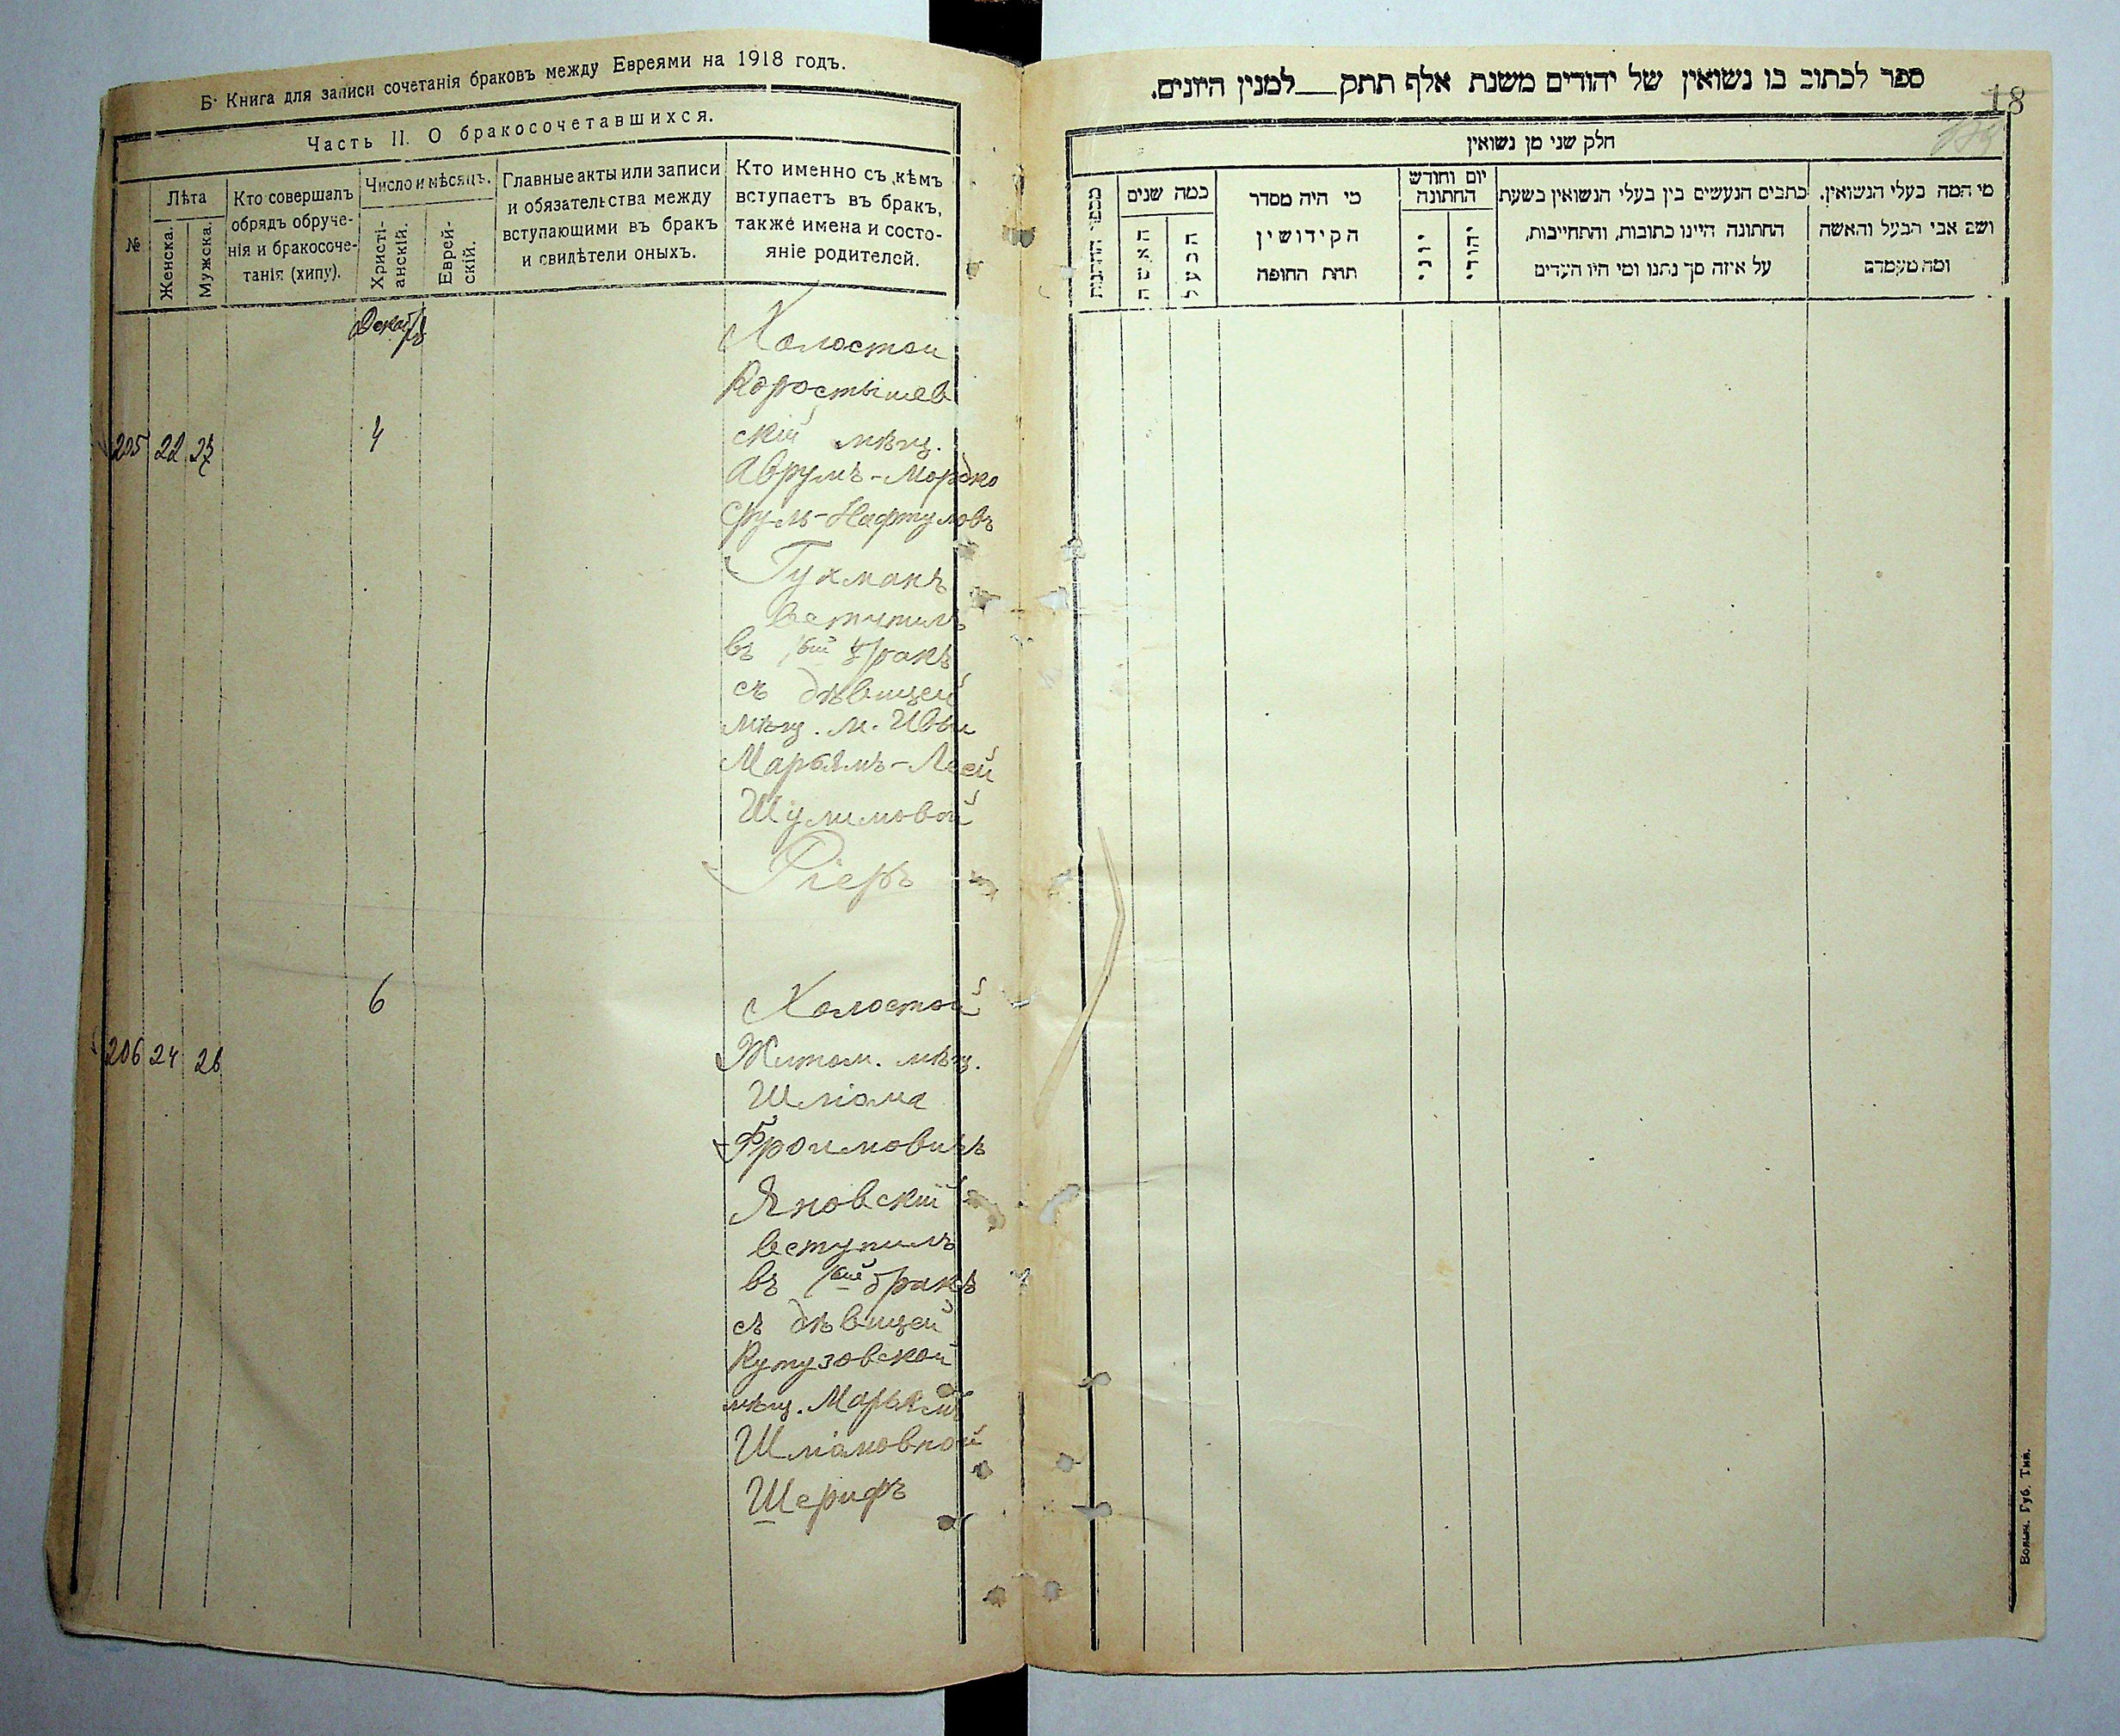 Б. Книга для записи сочетанія браковъ между Евреями на 1918 годъ.
Часть II. О бракосочетавшихся.
№
Лѣта
Женска.
Мужска.
Кто совершалъ
обрядъ обруче-
нія и бракосоче-
танія (хипу).
Число и мѣсяцъ.
Христі-
анскій.
Еврей-
скій.
Главные акты или записи
и обязательства между
вступающими въ бракъ
и свидѣтели оныхъ.
Кто именно съ кѣмъ
вступаетъ въ бракъ,
также имена и состо-
яніе родителей.
Декабрь
Холостой
Коростышев
скій мѣщ.
205 22 27 4
Аврумъ-Мордко
Сруль-Нафтуловъ
Гухманъ
вступилъ
въ 1ый бракъ
съ дѣвицей
мѣщ. м. Ивы
Марьямъ-Леей
Шулимовой
Ригеръ
6
Холостой
206 24 26
Житом. мѣщ.
Шліома
Фроимовичъ
Яновскій
вступилъ
въ 1ый бракъ
съ дѣвицей
Кутузовской
мѣщ. Марьямъ
Шліомовной
Шерифъ
ספר לכתוב בו נשואין של יהודים משנת אלף תתק__למנין היונים.
18
חלק שני מן נשואין
מספר החתונות
כמה שנים
האשה
הבעל
מי היה מסדר
הקידושין
תחת החופה
יום וחודש
החתונה
יוני
יהודי
כתבים הנעשים בין בעלי הנשואין בשעת
החתונה היינו כתובות, והתחייבות,
על איזה סך נתנו ומי היו העדים
מי המה בעלי הנשואין.
ושם אבי הבעל והאשה
ומה מעמדם
Волын. Губ. Тип.